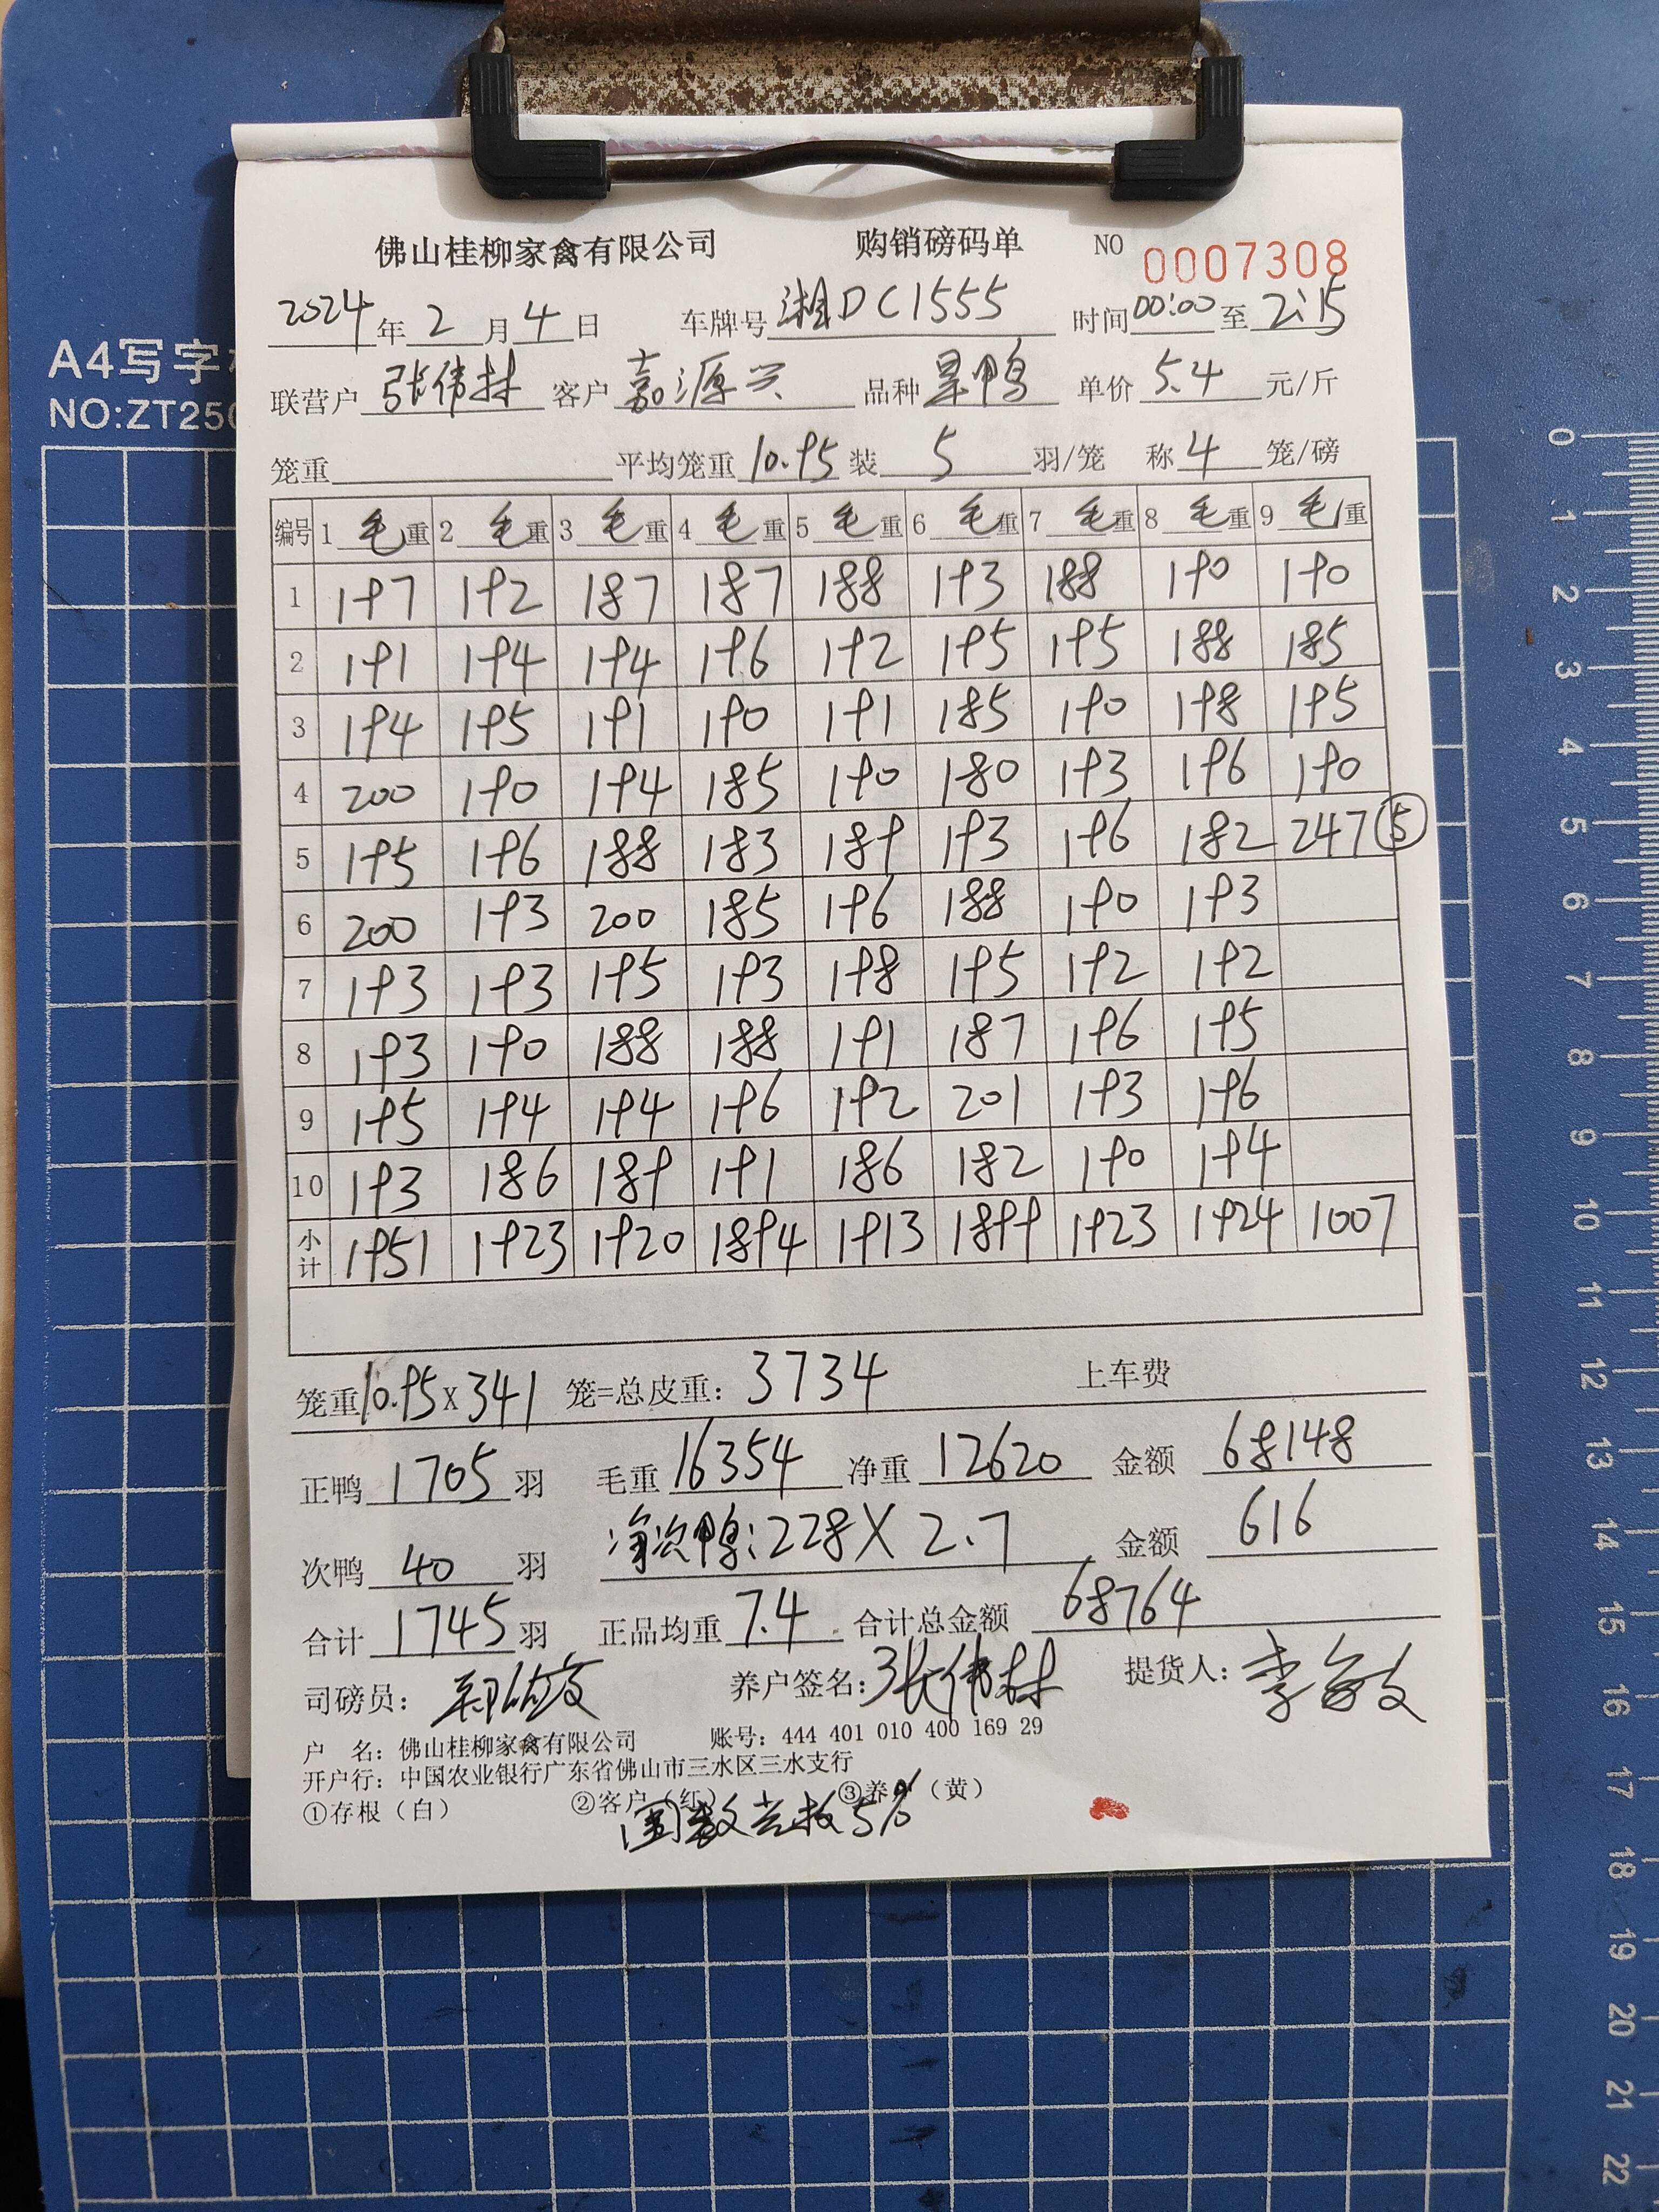 佛山桂柳家禽有限公司 购销磅码单 NO 0007308
2024年2月4日 车牌号湘DC1555 时间00:00至2:15
联营户 张伟林 客户 嘉源兴 品种 旱鸭 单价 5.4 元/斤
笼重 平均笼重 10.95 装 5 羽/笼 称 4 笼/磅
编号 1 毛重 2 毛重 3 毛重 4 毛重 5 毛重 6 毛重 7 毛重 8 毛重 9 毛重
1 197 192 187 187 188 193 188 190 190
2 191 194 194 196 192 195 195 188 185
3 194 195 191 190 191 185 190 198 195
4 200 190 194 185 190 180 193 196 190
5 195 196 188 183 189 193 196 182 247 ⑤
6 200 193 200 185 196 188 190 193
7 193 193 195 193 198 195 192 192
8 193 190 188 188 191 187 196 195
9 195 194 194 196 192 201 193 196
10 193 186 189 191 186 182 190 194
小计 1951 1923 1920 1894 1913 1899 1923 1924 1007
笼重10.95x341 笼=总皮重：3734 上车费
正鸭 1705 羽 毛重 16354 净重 12620 金额 68148
次鸭 40 羽 净次鸭：228X2.7 金额 616
合计 1745 羽 正品均重 7.4 合计总金额 68764
司磅员： 养户签名：张伟林 提货人：李
户 名：佛山桂柳家禽有限公司 账号：444 401 010 400 169 29
开户行：中国农业银行广东省佛山市三水区三水支行
①存根（白） ②客户（红） ③养户（黄）
5%
A4写字
NO:ZT250
0
1
2
3
4
5
6
7
8
9
10
11
12
13
14
15
16
17
18
19
20
21
22